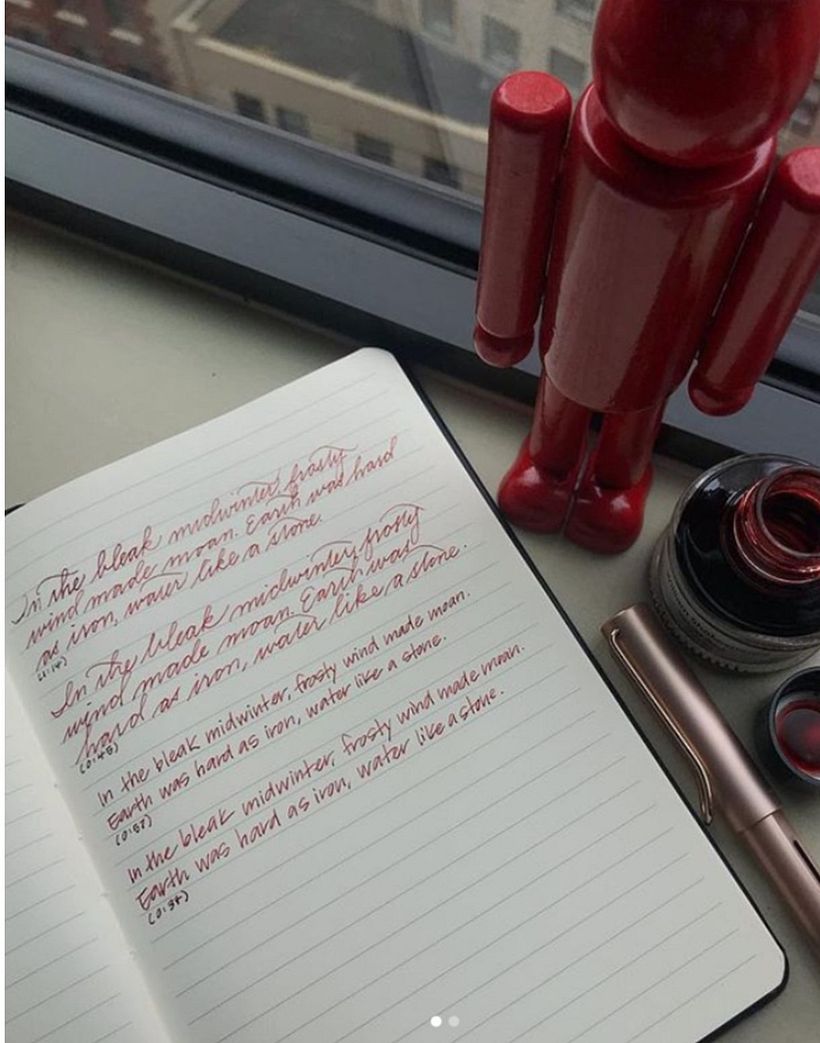 In the bleak midwinter, frosty
wind made moan. Earth was hard
as iron, water like a stone.
(1:14)
In the bleak midwinter, frosty
wind made moan. Earth was
hard as iron, water like a stone.
(0:48)
In the bleak midwinter, frosty wind made moan.
Earth was hard as iron, water like a stone.
(0:52)
In the bleak midwinter, frosty wind made moan.
Earth was hard as iron, water like a stone.
(0:37)